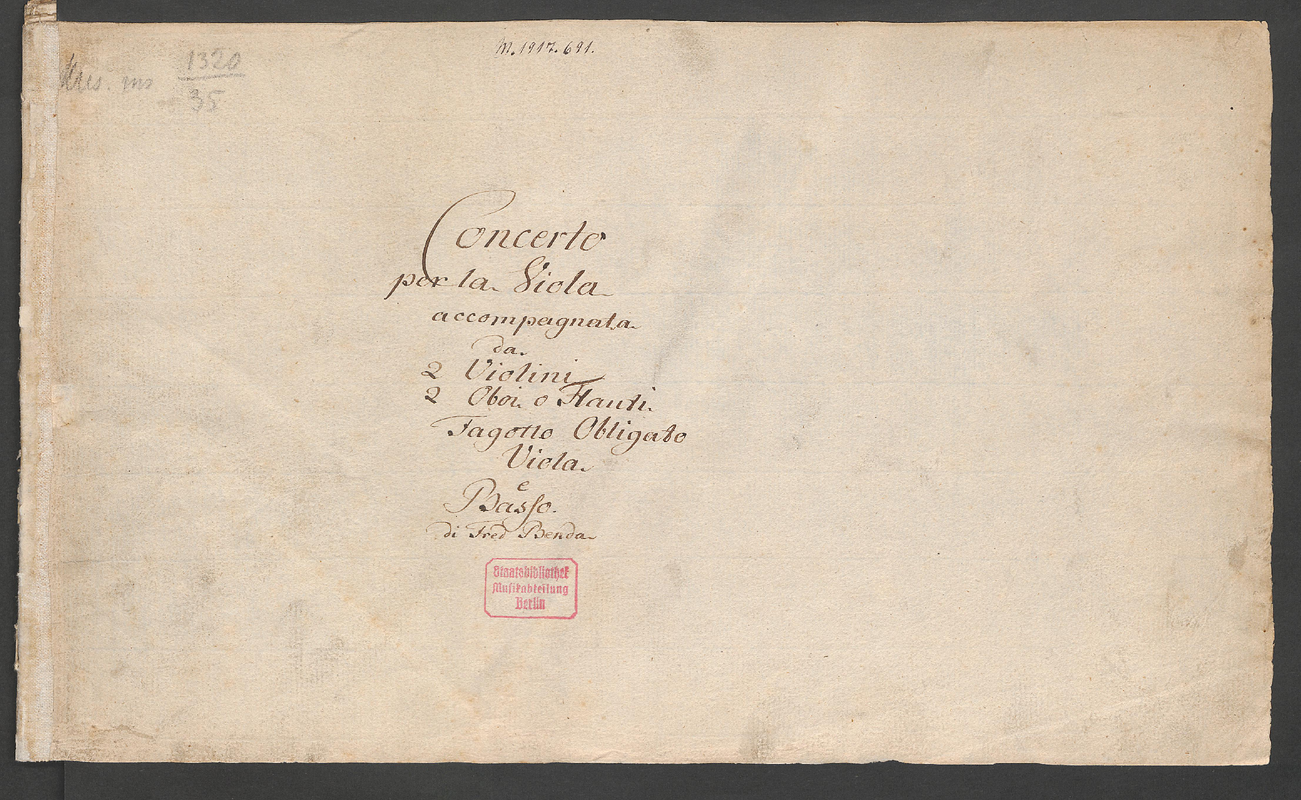 M. 1917. 691.
Mus. ms 1320
35
Concerto
per la Viola
accompagnata
da
2 Violini
2 Oboi o Flauti
Fagotto Obligato
Viola
e
Basso.
di Fred Benda
Staatsbibliothek
Musikabteilung
Berlin